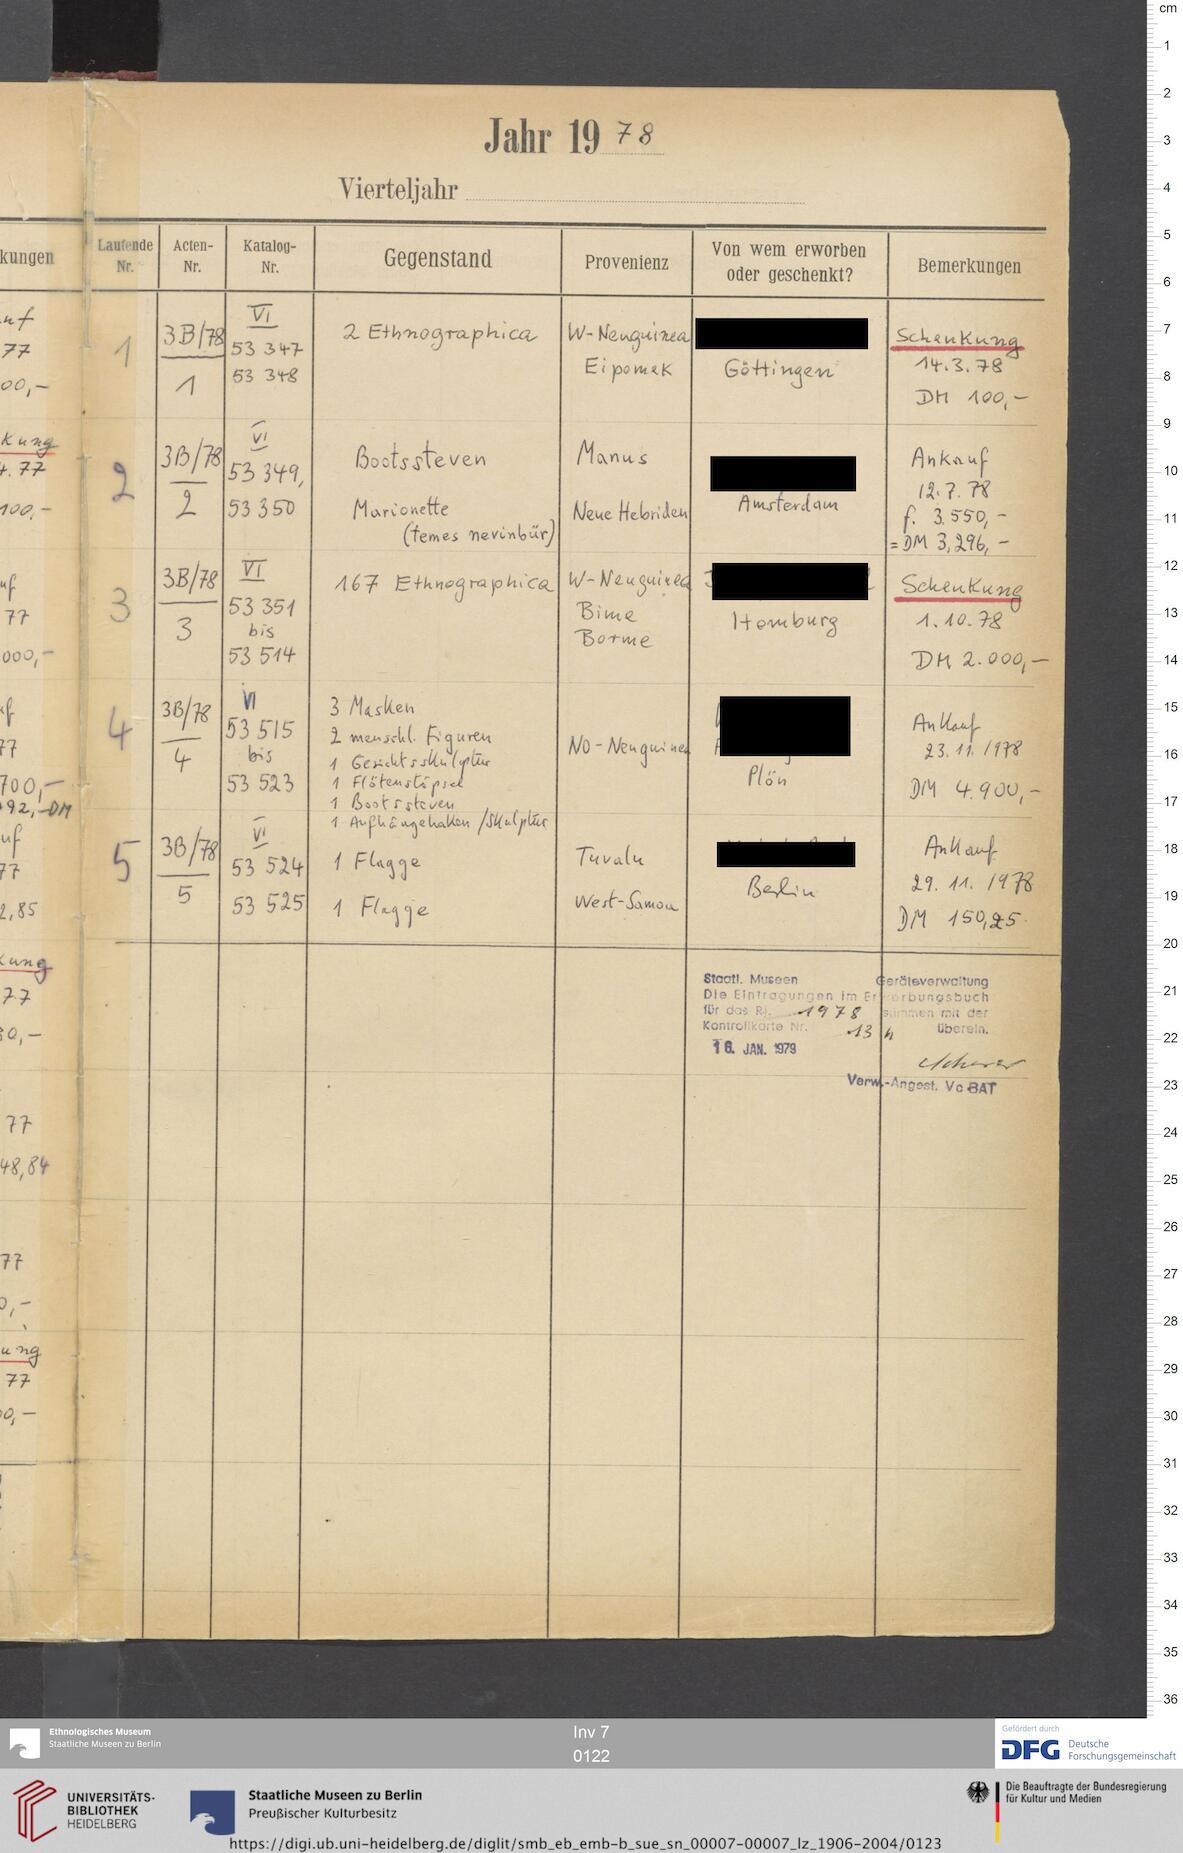 Jahr 1978
Vierteljahr
kungen
Laufende Nr.
Acten-Nr.
Katalog-Nr.
Gegenstand
Provenienz
Von wem erworben oder geschenkt?
Bemerkungen
77
00,-
kung
4.77
100,-
77
000,-
77
700,-
92,- DM
77
2,85
kung
77
77
48,84
77
ung
77
1
3B/78
1
VI
53 347
53 348
2 Ethnographica
W-Neuguinea
Eipomek
Göttingen
Schenkung
14.3.78
DM 100,-
2
3B/78
2
VI
53 349,
53 350
Bootssteven
Marionette
(temes nevinbür)
Manus
Neue Hebriden
Amsterdam
Ankauf
12.7.78
f. 3.550,-
= DM 3,296,-
3
3B/78
3
VI
53 351
bis
53 514
167 Ethnographica
W-Neuguinea
Bime
Borme
Hamburg
Schenkung
1.10.78
DM 2.000,-
4
3B/78
4
VI
53 515
bis
53 523
3 Masken
2 menschl. Figuren
1 Gesichtsskulptur
1 Flötenstöpsel
1 Bootssteven
1 Aufhängehaken/Skulptur
NO-Neuguinea
Plön
Ankauf
23.11.1978
DM 4.900,-
5
3B/78
5
VI
53 524
53 525
1 Flagge
1 Flagge
Tuvalu
West-Samoa
Berlin
Ankauf
29.11.1978
DM 150,25
Staatl. Museen Geräteverwaltung
Die Eintragungen im Erwerbungsbuch
für das Rj. 1978 stimmen mit der
Kontrollkarte Nr. 13 überein.
16. JAN. 1979
Verw.-Angest. Vc BAT
cm
1
2
3
4
5
6
7
8
9
10
11
12
13
14
15
16
17
18
19
20
21
22
23
24
25
26
27
28
29
30
31
32
33
34
35
36
Ethnologisches Museum
Staatliche Museen zu Berlin
Inv 7
0122
Gefördert durch
DFG Deutsche
Forschungsgemeinschaft
UNIVERSITÄTS-
BIBLIOTHEK
HEIDELBERG
Staatliche Museen zu Berlin
Preußischer Kulturbesitz
Die Beauftragte der Bundesregierung
für Kultur und Medien
https://digi.ub.uni-heidelberg.de/diglit/smb_eb_emb-b_sue_sn_00007-00007_lz_1906-2004/0123